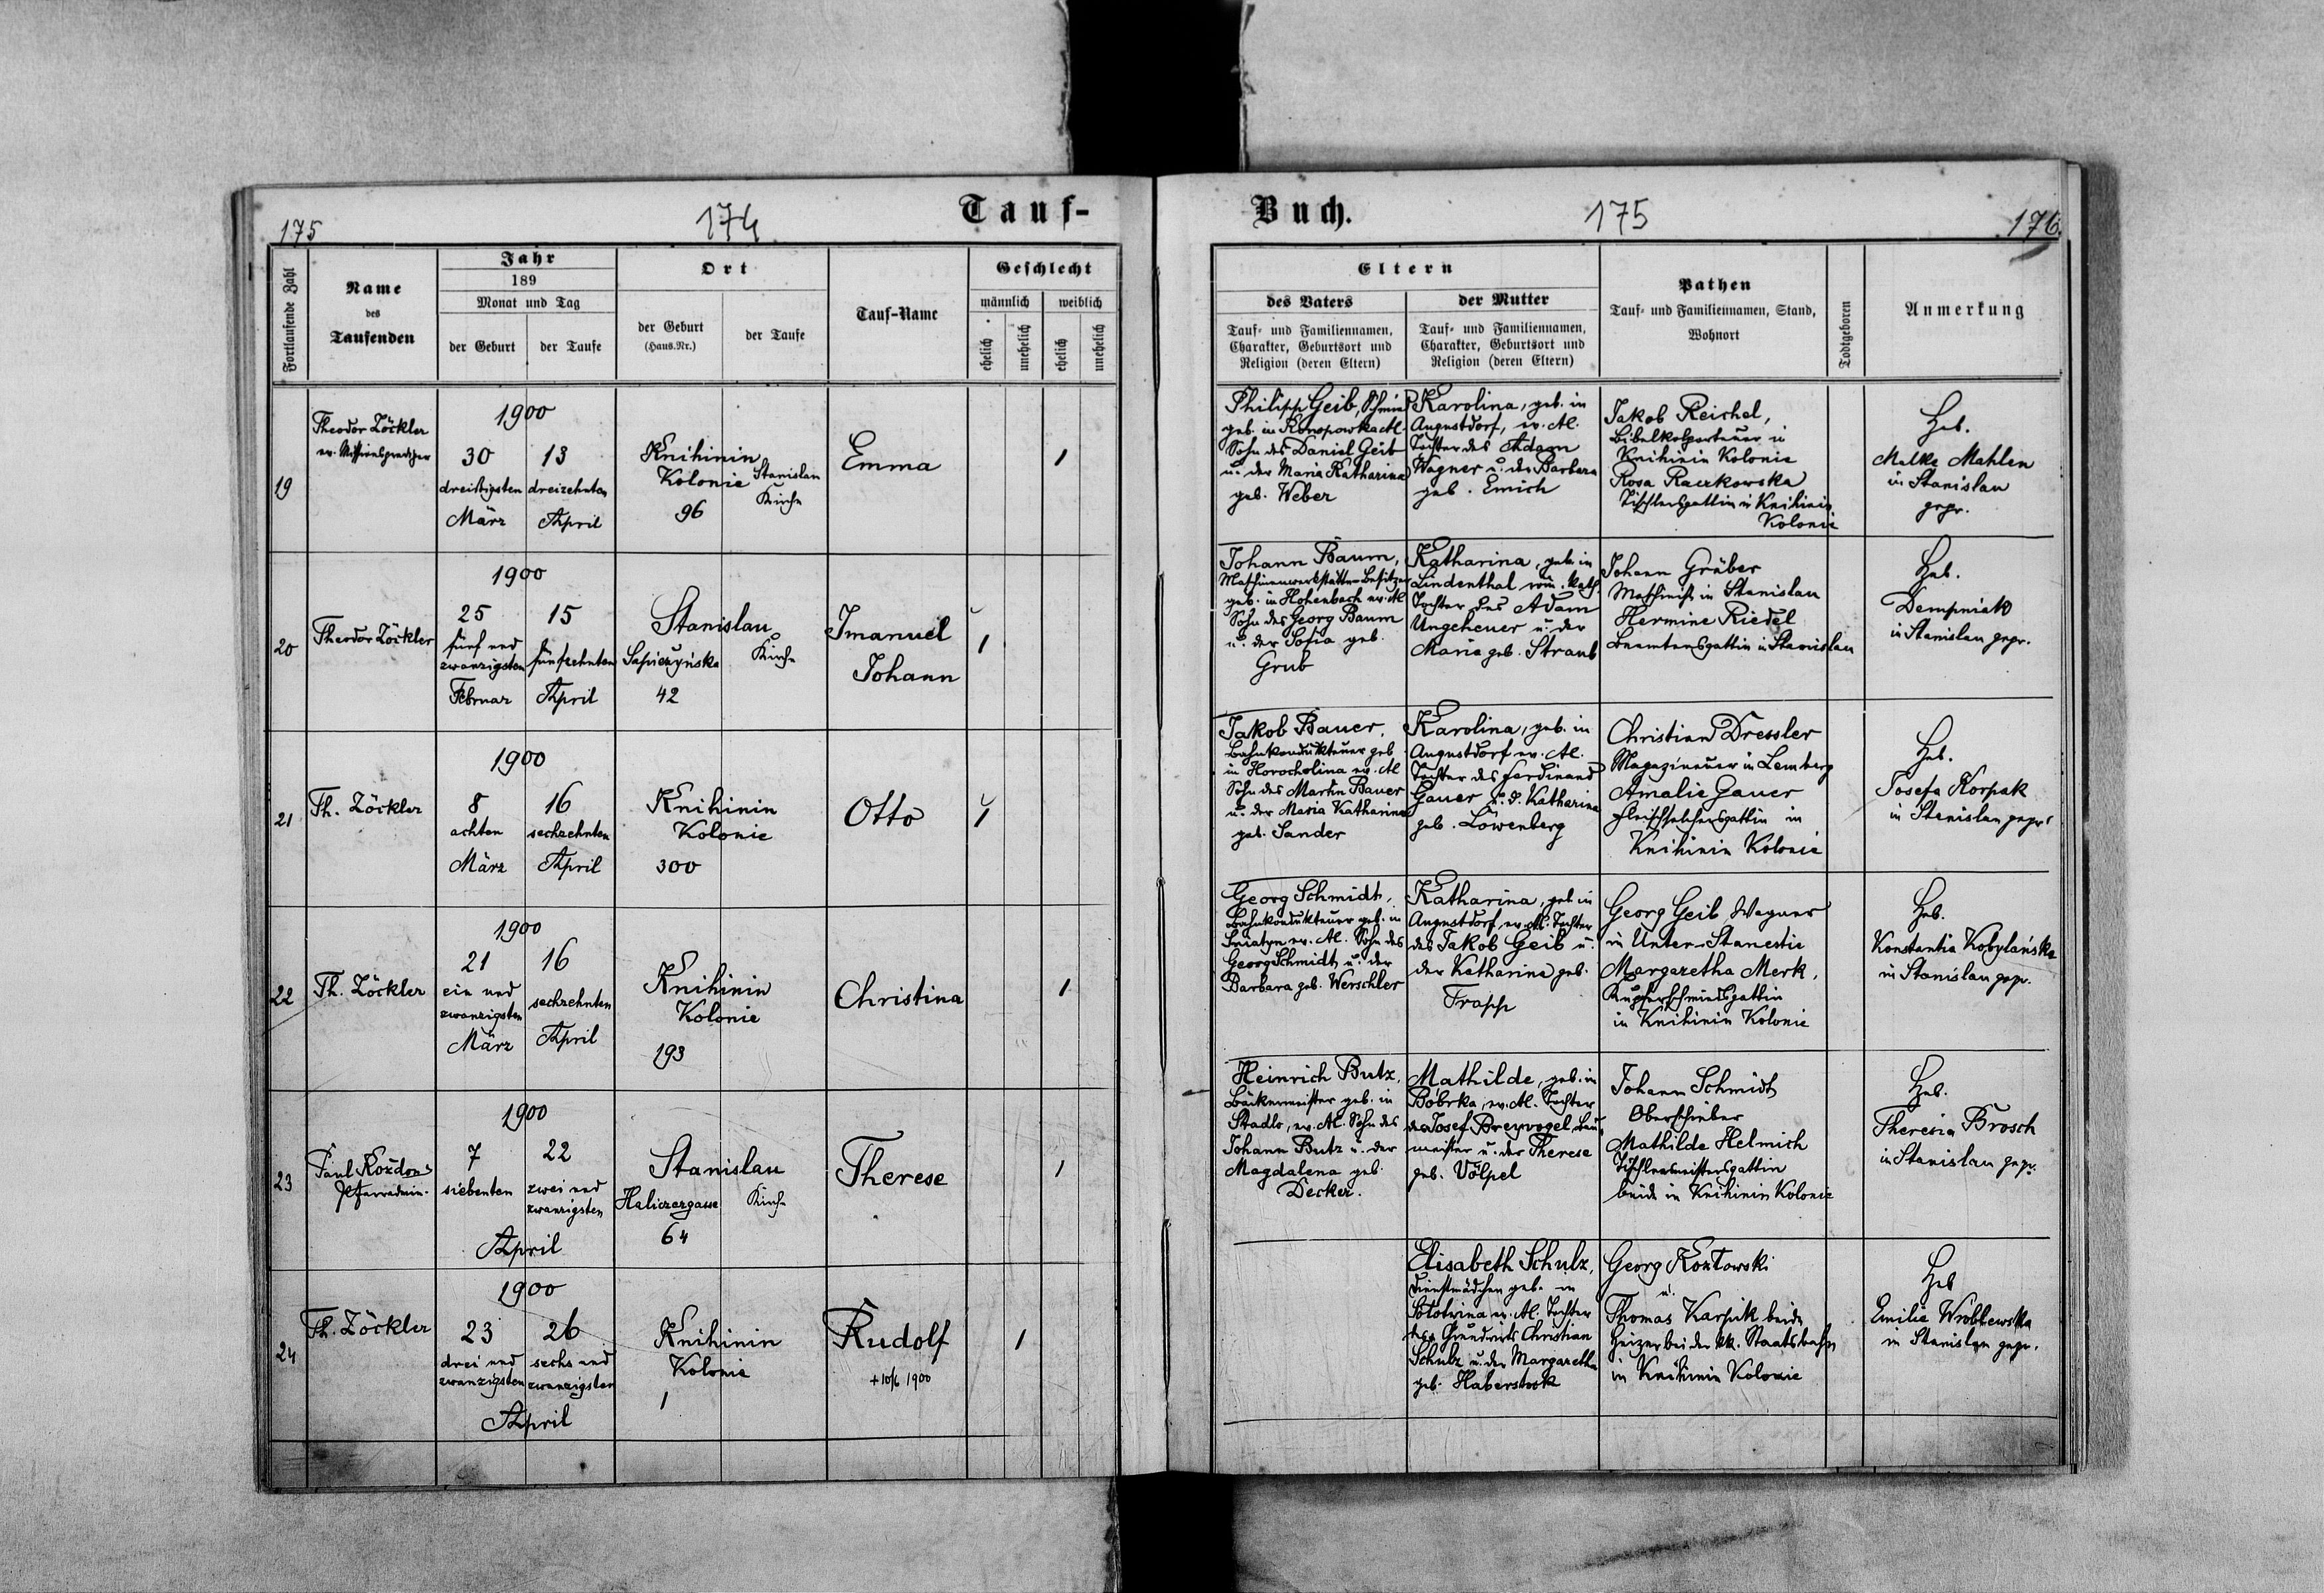 175
174
Tauf-
Buch.
175
176.
Fortlaufende Zahl
Name
des
Taufenden
Jahr
189
Monat und Tag
der Geburt
der Taufe
Ort
der Geburt
(Haus-Nr.)
der Taufe
Tauf-Name
Geschlecht
männlich
weiblich
ehelich
unehelich
ehelich
unehelich
Eltern
des Vaters
Tauf- und Familiennamen,
Charakter, Geburtsort und
Religion (deren Eltern)
der Mutter
Tauf- und Familiennamen,
Charakter, Geburtsort und
Religion (deren Eltern)
Pathen
Tauf- und Familiennamen, Stand,
Wohnort
Todtgeboren
Anmerkung
19
Theodor Zöckler
ev. Missionsprediger
1900
30
dreißigsten
März
13
dreizehnten
April
Knihinin
Kolonie
96
Stanislau
Kirche
Emma
1
Philipp Geib, Schmied
geb. in Konopowka
Sohn des Daniel Geib
u. der Maria Katharina
geb. Weber
Karolina, geb. in
Augustdorf, ev. Al.
Tochter des Adam
Wagner u. der Barbara
geb. Emich
Jakob Reichel,
Bibelkolporteuer in
Knihinin Kolonie
Rosa Raczkowska
Tischlersgattin in Knihinin
Kolonie
Heb.
Malke Mahlen
in Stanislau
gepr.
20
Theodor Zöckler
1900
25
fünf und
zwanzigsten
Februar
15
fünfzehnten
April
Stanislau
Sapieżyńska
42
Kirche
Imanuel
Johann
1
Johann Baum,
Maschinenwerkstätte-Besitzer
geb. in Hohenbach ev. Al
Sohn des Georg Baum
u. der Sofia geb.
Grub
Katharina, geb. in
Lindenthal röm. kath.
Tochter des Adam
Ungeheuer u. der
Maria geb. Straub
Johann Gräber
Maschinist in Stanislau
Hermine Riedel
Beamtensgattin in Stanislau
Heb.
Dempniak
in Stanislau gepr.
21
Th. Zöckler
1900
8
achten
März
16
sechzehnten
April
Knihinin
Kolonie
300
Otto
1
Jakob Bauer,
Bahnkondukteuer geb
in Horocholina ev. Al
Sohn des Martin Bauer
u. der Maria Katharina
geb. Sander
Karolina, geb. in
Augustdorf ev. Al.
Tochter des Ferdinand
Gauer u. d. Katharina
geb. Löwenberg
Christian Dressler
Magazineuer in Lemberg
Amalie Gauer
Fleischselchersgattin in
Knihinin Kolonie
Heb.
Josefa Korpak
in Stanislau gepr.
22
Th. Zöckler
1900
21
ein und
zwanzigsten
März
16
sechzehnten
April
Knihinin
Kolonie
193
Christina
1
Georg Schmidt,
Bahnkondukteuer geb. in
Sniatyn ev. Al. Sohn des
Georg Schmidt u. der
Barbara geb. Werschler
Katharina, geb. in
Augustdorf, ev. Al. Tochter
des Jakob Geib u.
der Katharina geb.
Trapp
Georg Geib Wagner
in Unter-Stanestie
Margaretha Merk,
Kupferschmiedsgattin
in Knihinin Kolonie
Heb.
Konstantia Kobylańska
in Stanislau gepr.
23
Paul Kożdon
Pfarradmin.
1900
7
siebenten
22
zwei und
zwanzigsten
April
Stanislau
Haliczergasse
64
Kirche
Therese
1
Heinrich Butz,
Bäckermeister geb. in
Stadlo, ev. Al. Sohn des
Johann Butz u. der
Magdalena geb.
Decker.
Mathilde, geb. in
Bóbrka, ev. Al. Tochter
des Josef Breyvogel, Bau
meister u. der Therese
geb. Völpel
Johann Schmidt
Oberschieber
Mathilde Helmich
Tischlermeistersgattin
beide in Knihinin Kolonie
Heb.
Theresia Brosch
in Stanislau gepr.
24
Th. Zöckler
1900
23
drei und
zwanzigsten
26
sechs und
zwanzigsten
April
Knihinin
Kolonie
1
Rudolf
+ 10/6 1900
1
Elisabeth Schulz,
Dienstmädchen geb. in
Solotwina ev. Al. Tochter
des Grundwirts Christian
Schulz u. der Margaretha
geb. Haberstock
Georg Kozłowski
u.
Thomas Karpik beide
Heizer bei der kk. Staatsbahn
in Knihinin Kolonie
Heb
Emilie Wróblewska
in Stanislau gepr.